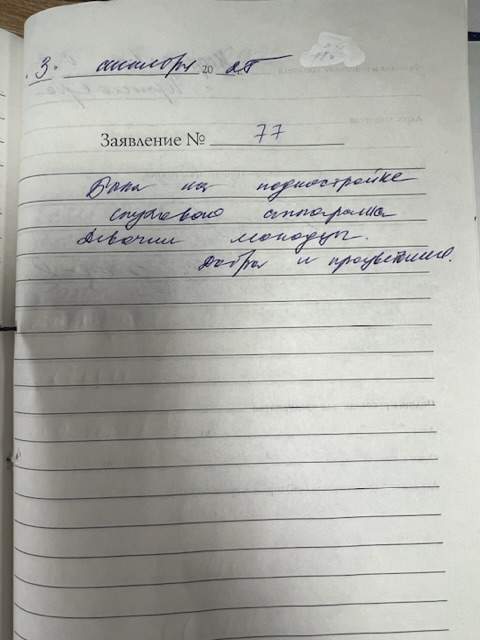 3. октября 20 25
Заявление № 77
Была на поднастройке
слухового аппарата
Девочки молодцы.
Добра и процветания.